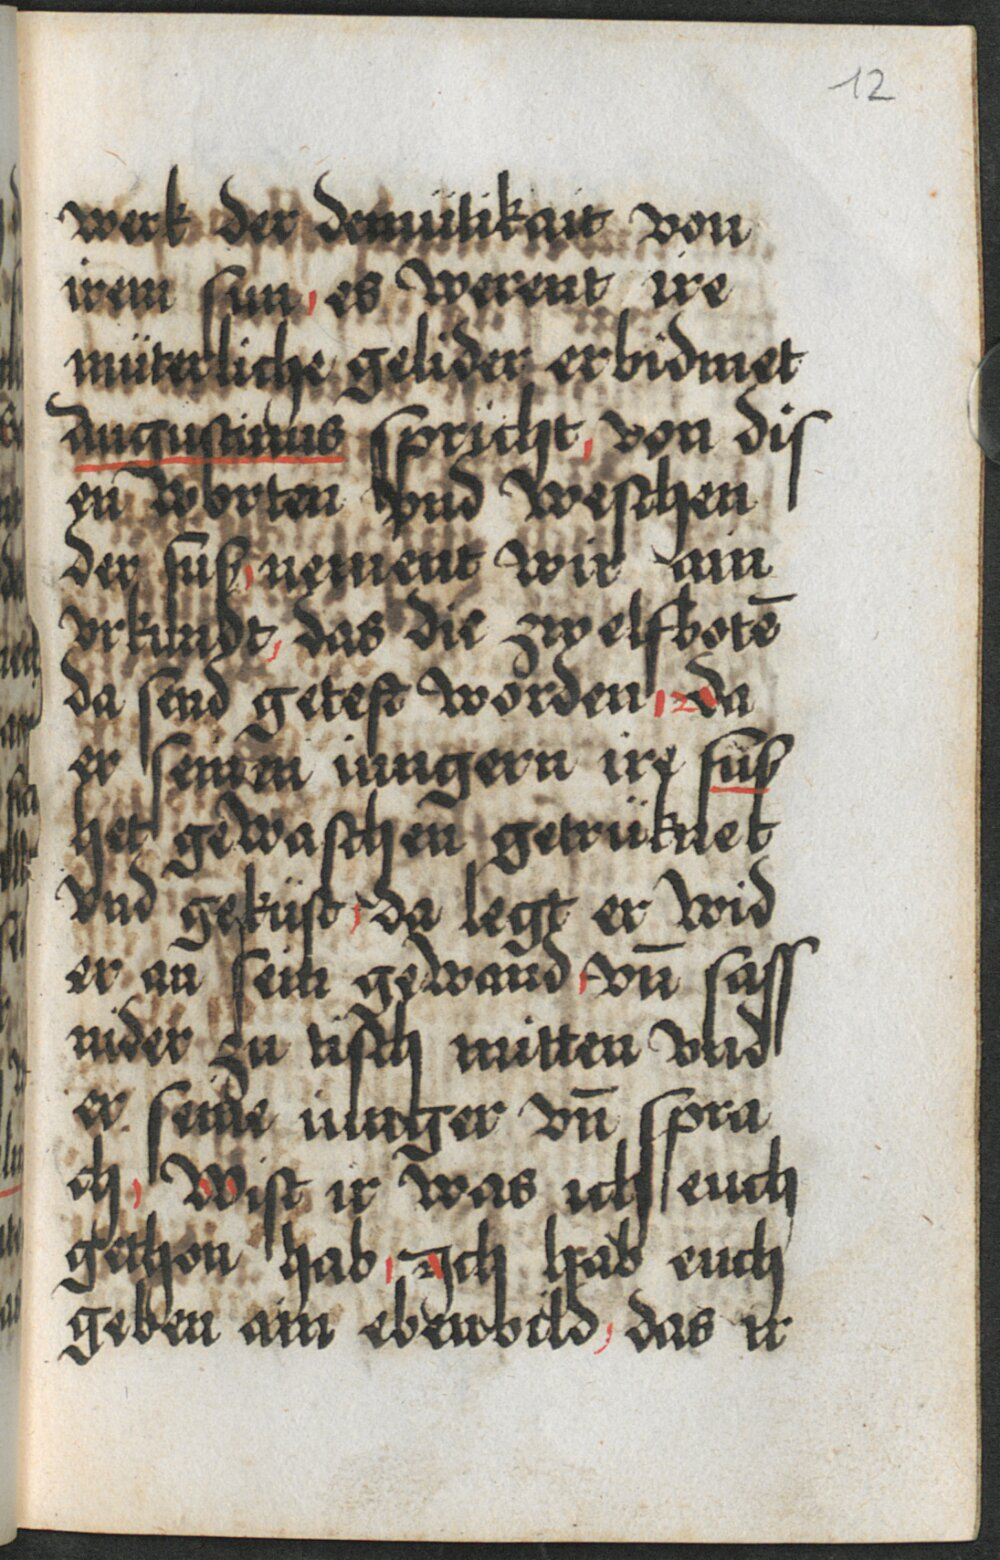 12
werk der demütikait von
irem sun, es werent ire
müterliche gelider erbidmet
Augustinus spricht, von dis
en worten vnd weschen
der füß, nement wir ain
vrkundt, das die zwelfbotē
da send getefft worden, da
er seinen iungern ire füß
het gewaschen getrüknet
vnd geküst, da legt er wid
er an sein gewand, vn̄ sass
nider zu tisch mitten vnd
er seine iunger vn̄ spra
ch, Wist ir was ich euch
gethon hab, Ich hab euch
geben ain ebenbild, das ir